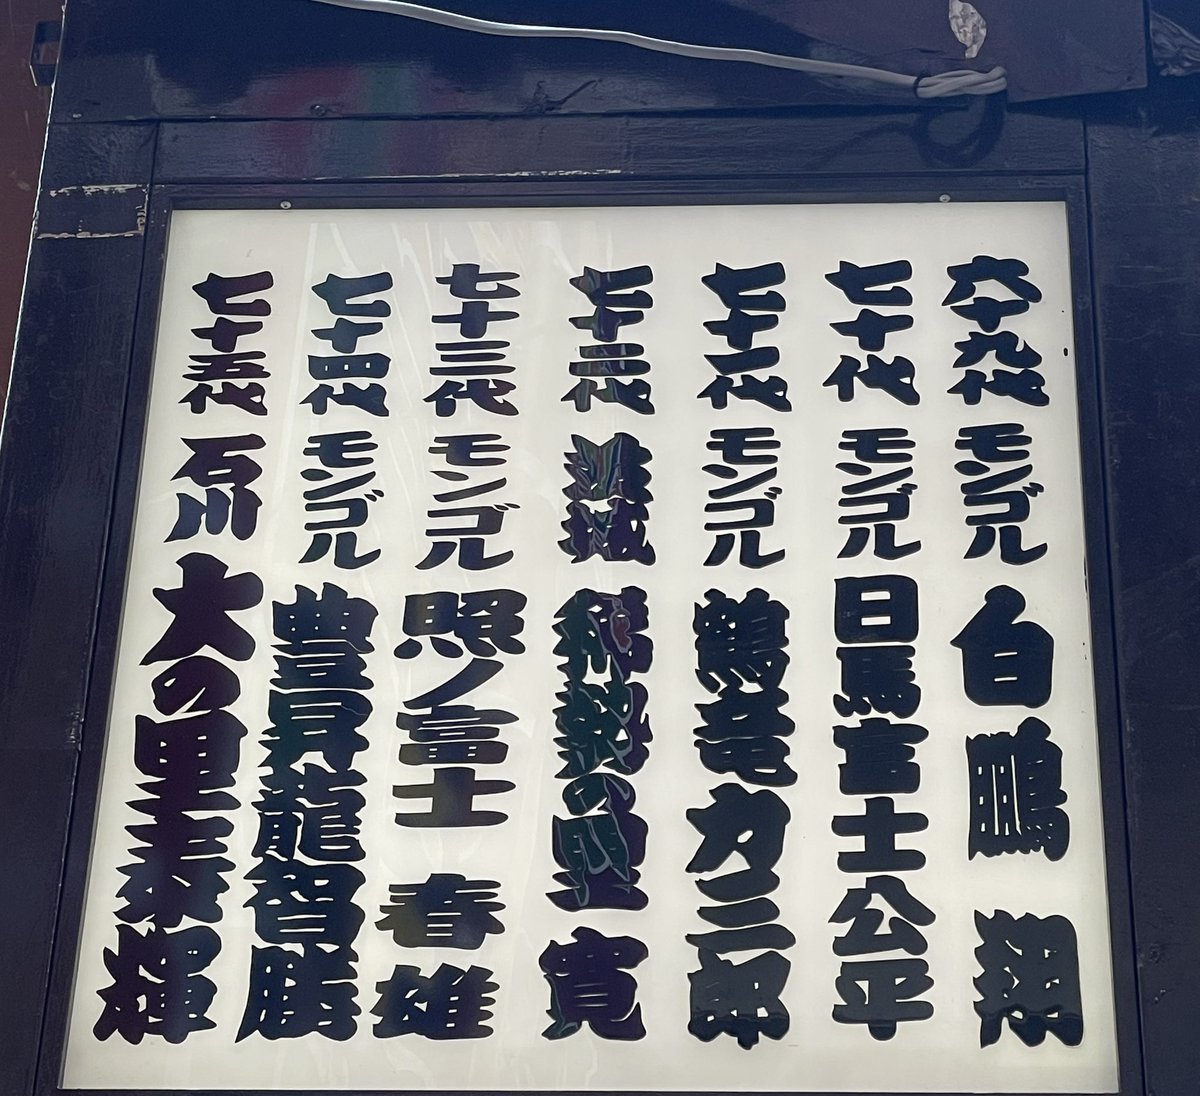 六十九代 モンゴル 白鵬 翔
七十代 モンゴル 日馬富士 公平
七十一代 モンゴル 鶴竜 力三郎
七十二代 茨城 稀勢の里 寛
七十三代 モンゴル 照ノ富士 春雄
七十四代 モンゴル 豊昇龍 智勝
七十五代 石川 大の里 泰輝